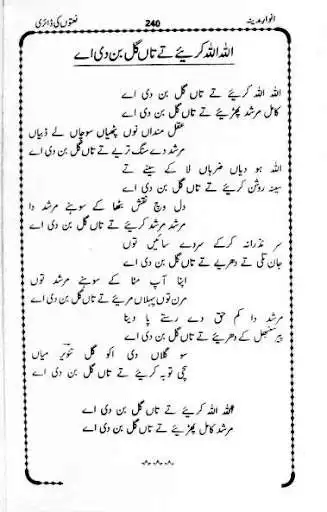 انوارِ مدینہ 240 نعتوں کی ڈائری
اللہ اللہ کریئے تے تاں گل بن دی اے
اللہ اللہ کریئے تے تاں گل بن دی اے
کامل مرشد پھڑیئے تے تاں گل بن دی اے
عقل منداں نوں پٹھیاں سوچاں لے ڈبیاں
مرشد دے سنگ تریے تے تاں گل بن دی اے
اللہ ہو دیاں ضرباں لا کے سینے تے
سینہ روشن کریئے تے تاں گل بن دی اے
دل وچ نقش بٹھا کے سوہنے مرشد دا
مرشد مرشد کریئے تے تاں گل بن دی اے
سر نذرانہ کرکے سردے سائیں توں
جان تلی تے دھریے تے تاں گل بن دی اے
اپنا آپ مٹا کے سوہنے مرشد توں
مرن توں پہلاں مریئے تے تاں گل بن دی اے
مرشد دا کم حق دے رستے پا دینا
پیر سنبھل کے دھریئے تے تاں گل بن دی اے
سو گلاں دی اکو گل تنویر میاں
سچی توبہ کریئے تے تاں گل بن دی اے
اللہ اللہ کریئے تے تاں گل بن دی اے
مرشد کامل پھڑیئے تے تاں گل بن دی اے